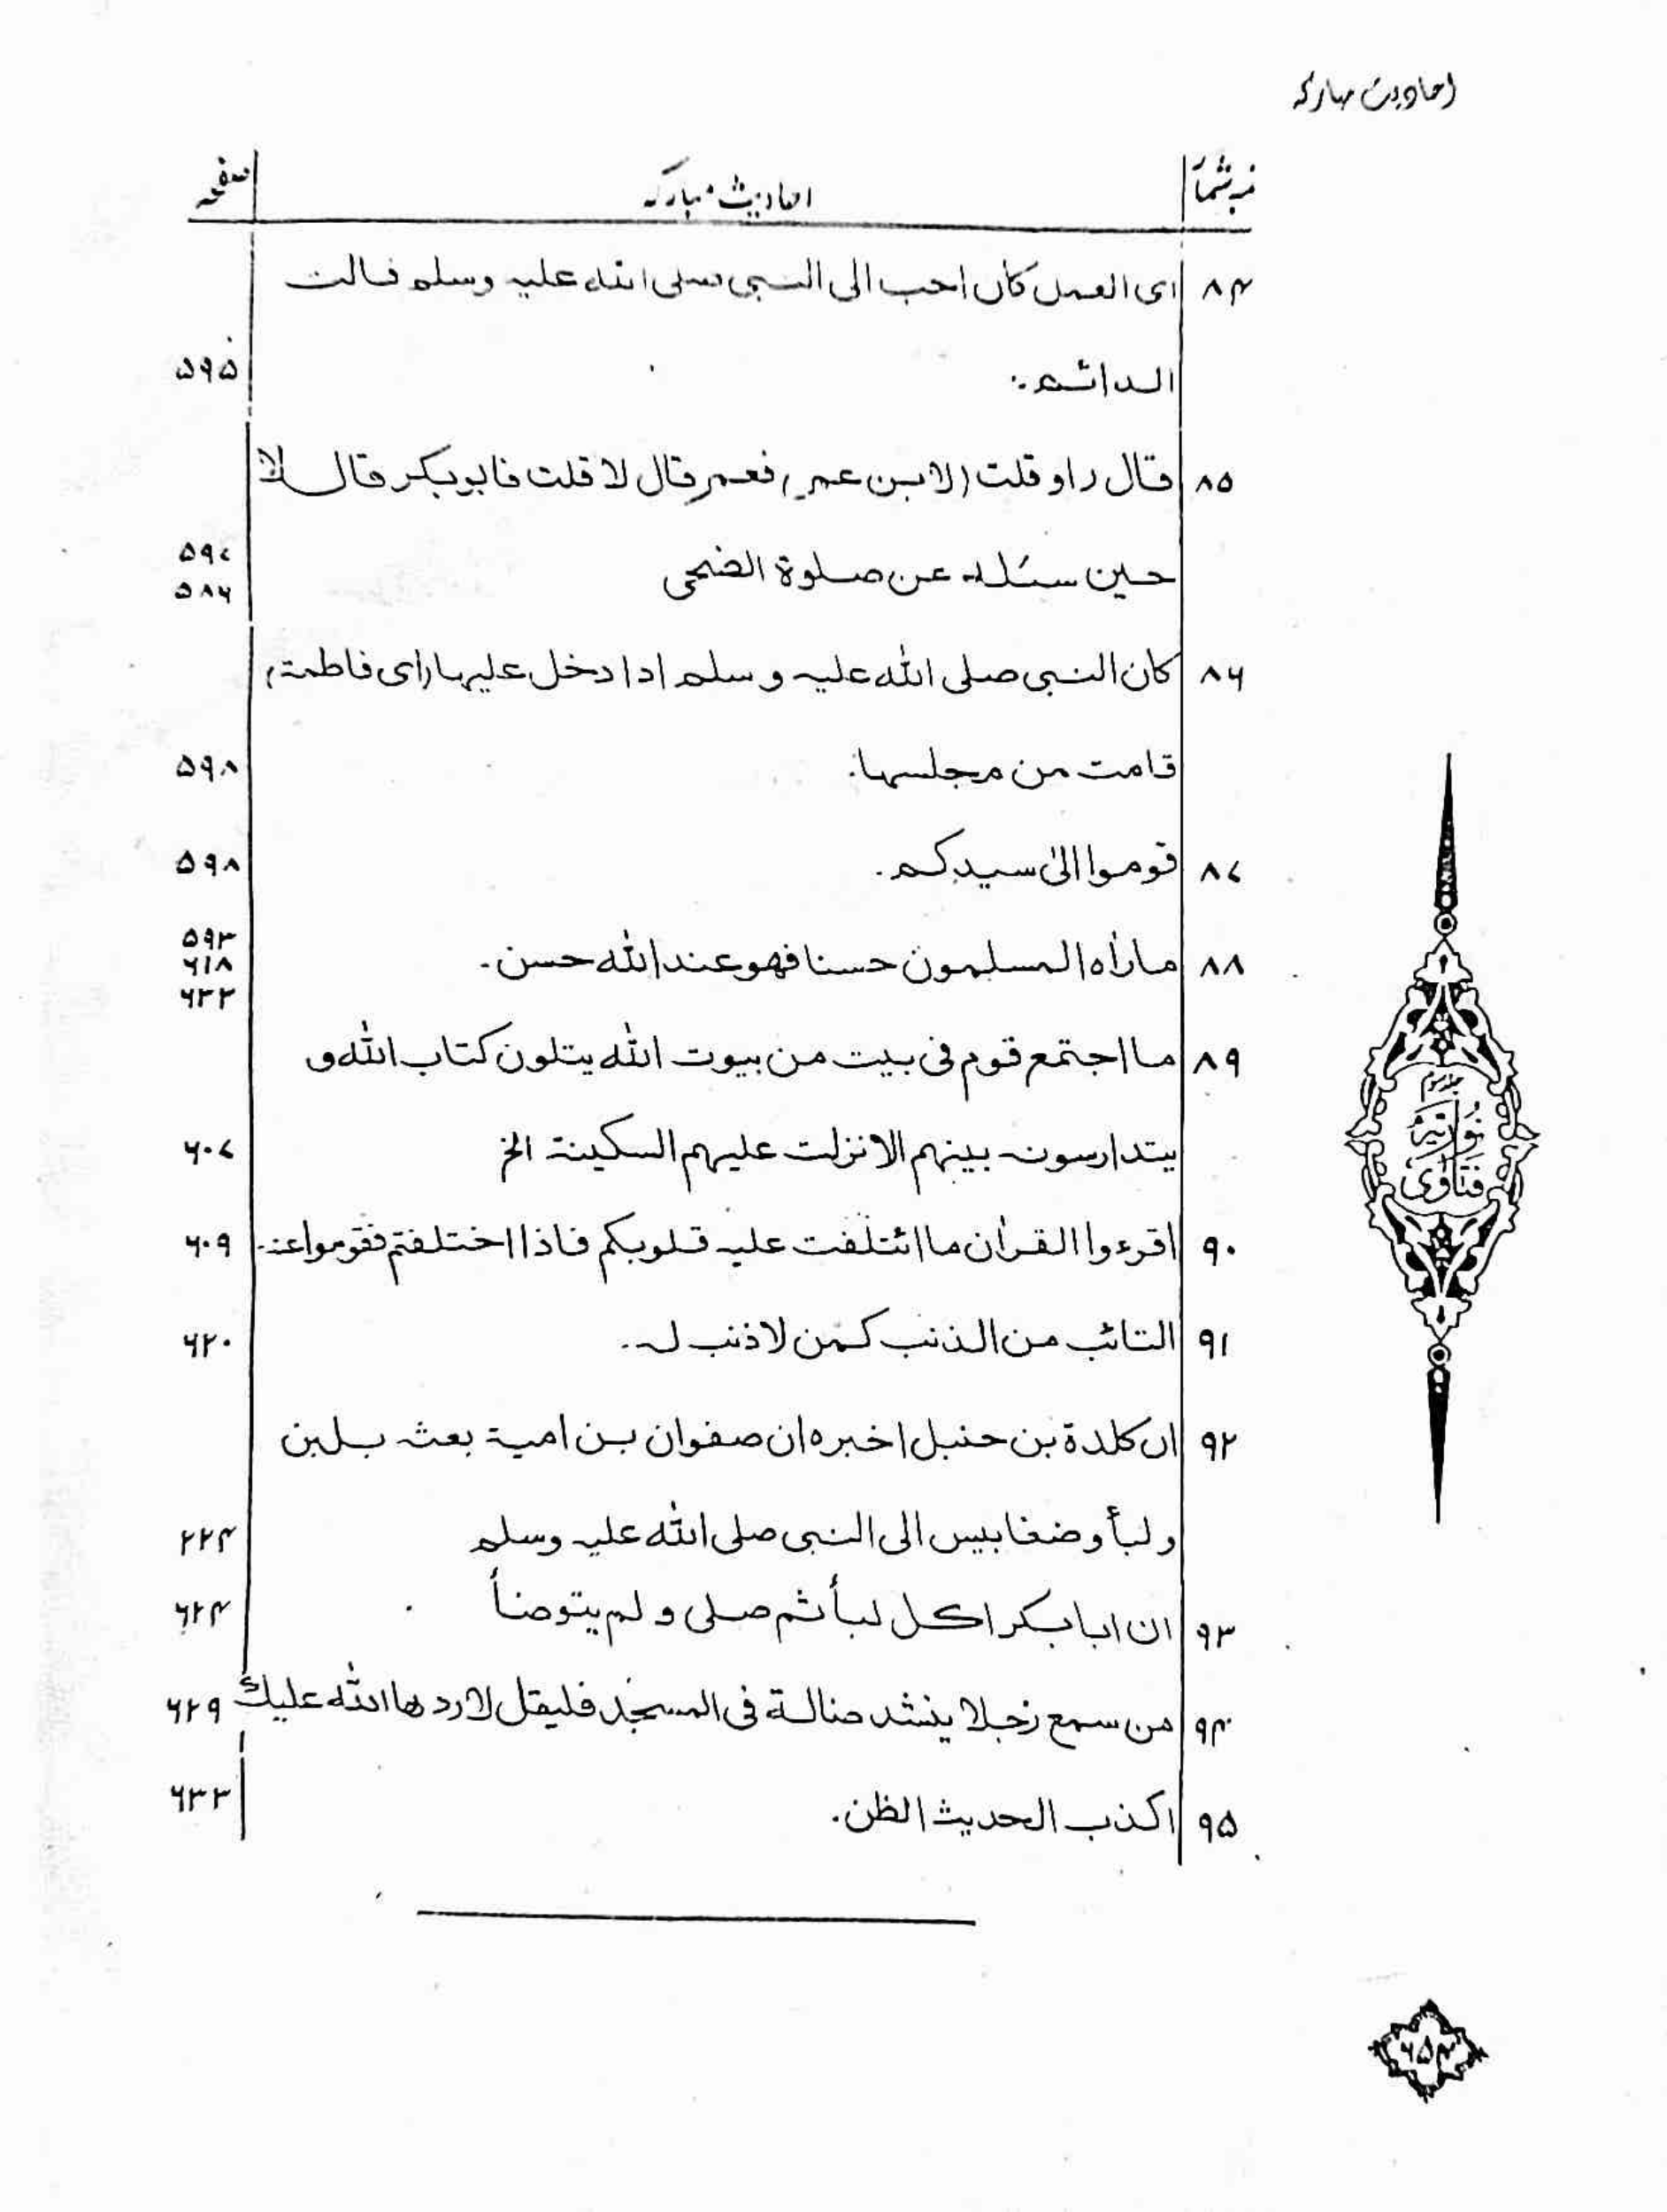 احادیث مبارکہ
نمبر شمار احادیث مبارکہ صفحہ
۸۴ ای العمل کان احب الی النبی صلی اللہ علیہ وسلم قالت
الدائم۔ ۵۹۵
۸۵ قال راو قلت (لابن عمر) فعمر قال لا قلت فابوبکر قال لا
حین سئلہ عن صلوة الضحی ۵۹۷
۵۸۶
۸۶ کان النبی صلی اللہ علیہ وسلم اذا دخل علیہا (ای فاطمة)
قامت من مجلسہا۔ ۵۹۸
۸۷ قوموا الیٰ سیدکم۔ ۵۹۸
۸۸ ماراٰہ المسلمون حسنا فھو عند اللہ حسن۔ ۵۹۳
۶۱۸
۶۳۲
۸۹ ما اجتمع قوم فی بیت من بیوت اللہ یتلون کتاب اللہ و
یتدارسون بینہم الا نزلت علیہم السکینة الخ ۶۰۷
۹۰ اقرءوا القراٰن ما ائتلفت علیہ قلوبکم فاذا اختلفتم فقوموا عنہ۔ ۶۰۹
۹۱ التائب من الذنب کمن لا ذنب لہ۔ ۶۲۰
۹۲ ان کلدة بن حنبل اخبرہ ان صفوان بن امیة بعث بلبن
و لبأ وضغابیس الی النبی صلی اللہ علیہ وسلم ۲۲۴
۹۳ ان ابا بکر اکل لبأ ثم صلی و لم یتوضأ ۶۲۴
۹۴ من سمع رجلا ینشد ضالة فی المسجد فلیقل لا ردھا اللہ علیك ۶۲۹
۹۵ اکذب الحدیث الظن۔ ۶۳۲
جلد سوم
نوریہ
فتاوی
۶۵۴